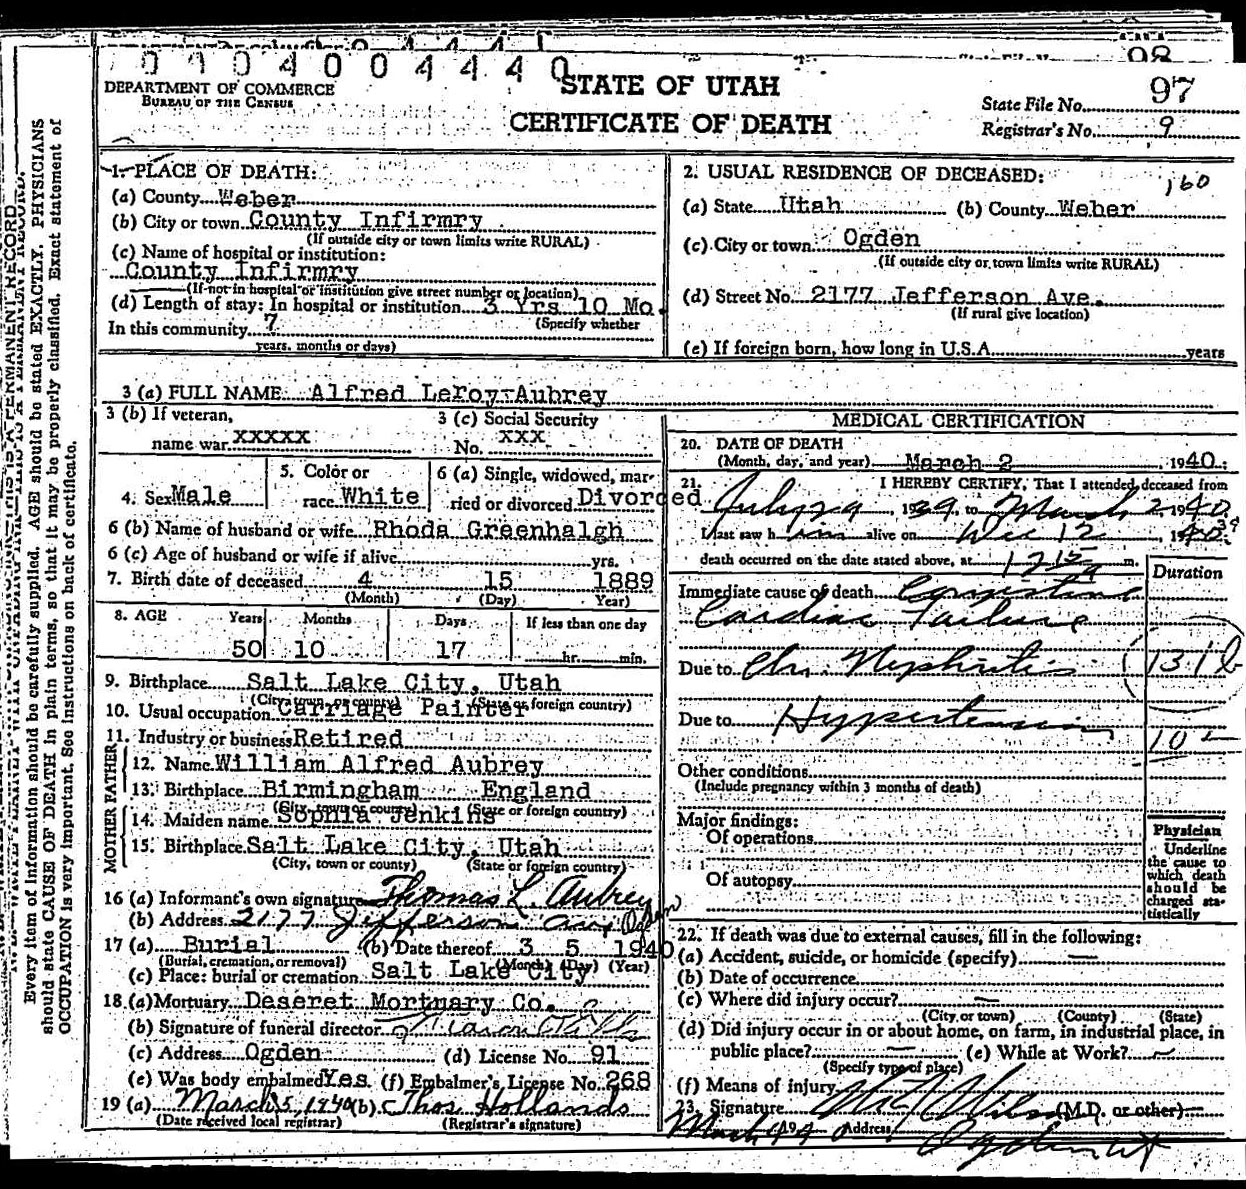 0 4 0 4 0 0 4 4 4 0
98
STATE OF UTAH
CERTIFICATE OF DEATH
DEPARTMENT OF COMMERCE
BUREAU OF THE CENSUS
State File No. 97
Registrar's No. 9
Every item of information should be carefully supplied. AGE should be stated EXACTLY. PHYSICIANS
should state CAUSE OF DEATH in plain terms, so that it may be properly classified. Exact statement of
OCCUPATION is very important. See Instructions on back of certificate.
1. PLACE OF DEATH:
(a) County Weber
(b) City or town County Infirmry
(If outside city or town limits write RURAL)
(c) Name of hospital or institution:
County Infirmry
(If not in hospital or institution give street number or location)
(d) Length of stay: In hospital or institution 3 Yrs 10 Mo.
In this community 7 (Specify whether
years, months or days)
2. USUAL RESIDENCE OF DECEASED: 160
(a) State Utah (b) County Weber
(c) City or town Ogden
(If outside city or town limits write RURAL)
(d) Street No. 2177 Jefferson Ave.
(If rural give location)
(e) If foreign born, how long in U.S.A. years
3 (a) FULL NAME Alfred LeRoy Aubrey
3 (b) If veteran, name war XXXXX
3 (c) Social Security No. XXX
4. Sex Male
5. Color or race White
6 (a) Single, widowed, married or divorced Divorced
6 (b) Name of husband or wife Rhoda Greenhalgh
6 (c) Age of husband or wife if alive yrs.
7. Birth date of deceased 4 15 1889
(Month) (Day) Year)
8. AGE Years Months Days If less than one day
50 10 17 hr. min.
9. Birthplace Salt Lake City, Utah
(City, town, or county) (State or foreign country)
10. Usual occupation Carriage Painter
11. Industry or business Retired
FATHER
12. Name William Alfred Aubrey
13. Birthplace Birmingham England
(City, town or county) (State or foreign country)
MOTHER
14. Maiden name Sophia Jenkins
15. Birthplace Salt Lake City, Utah
(City, town or county) (State or foreign country)
16 (a) Informant's own signature Thomas L. Aubrey
(b) Address 2177 Jefferson Ave, Ogden
17 (a) Burial (b) Date thereof 3 5 1940
(Burial, cremation, or removal) (Month) (Day) (Year)
(c) Place: burial or cremation Salt Lake City
18 (a) Mortuary Deseret Mortuary Co.
(b) Signature of funeral director
(c) Address Ogden (d) License No. 91
(e) Was body embalmed Yes (f) Embalmer's License No. 268
19 (a) March 5, 1940 (b) Thos Hollands
(Date received local registrar) (Registrar's signature)
MEDICAL CERTIFICATION
20. DATE OF DEATH
(Month, day, and year) March 2 1940
21. I HEREBY CERTIFY, That I attended deceased from
July 29, 1939, to March 2 1940
I last saw him alive on Dec 12, 1940 39
death occurred on the date stated above, at 12 15 a m.
Duration
Immediate cause of death Congestive
Cardiac Failure
Due to Chr. Nephritis 131b
Due to Hypertension
102
Other conditions
(Include pregnancy within 3 months of death)
Major findings:
Of operations
Of autopsy
Physician
Underline the cause to which death should be charged statistically
22. If death was due to external causes, fill in the following:
(a) Accident, suicide, or homicide (specify) —
(b) Date of occurrence
(c) Where did injury occur? —
(City or town) (County) (State)
(d) Did injury occur in or about home, on farm, in industrial place, in
public place? — (e) While at Work? —
(Specify type of place)
(f) Means of injury
23. Signature (M.D. or other)
March 4 1940 Address Ogden Ut